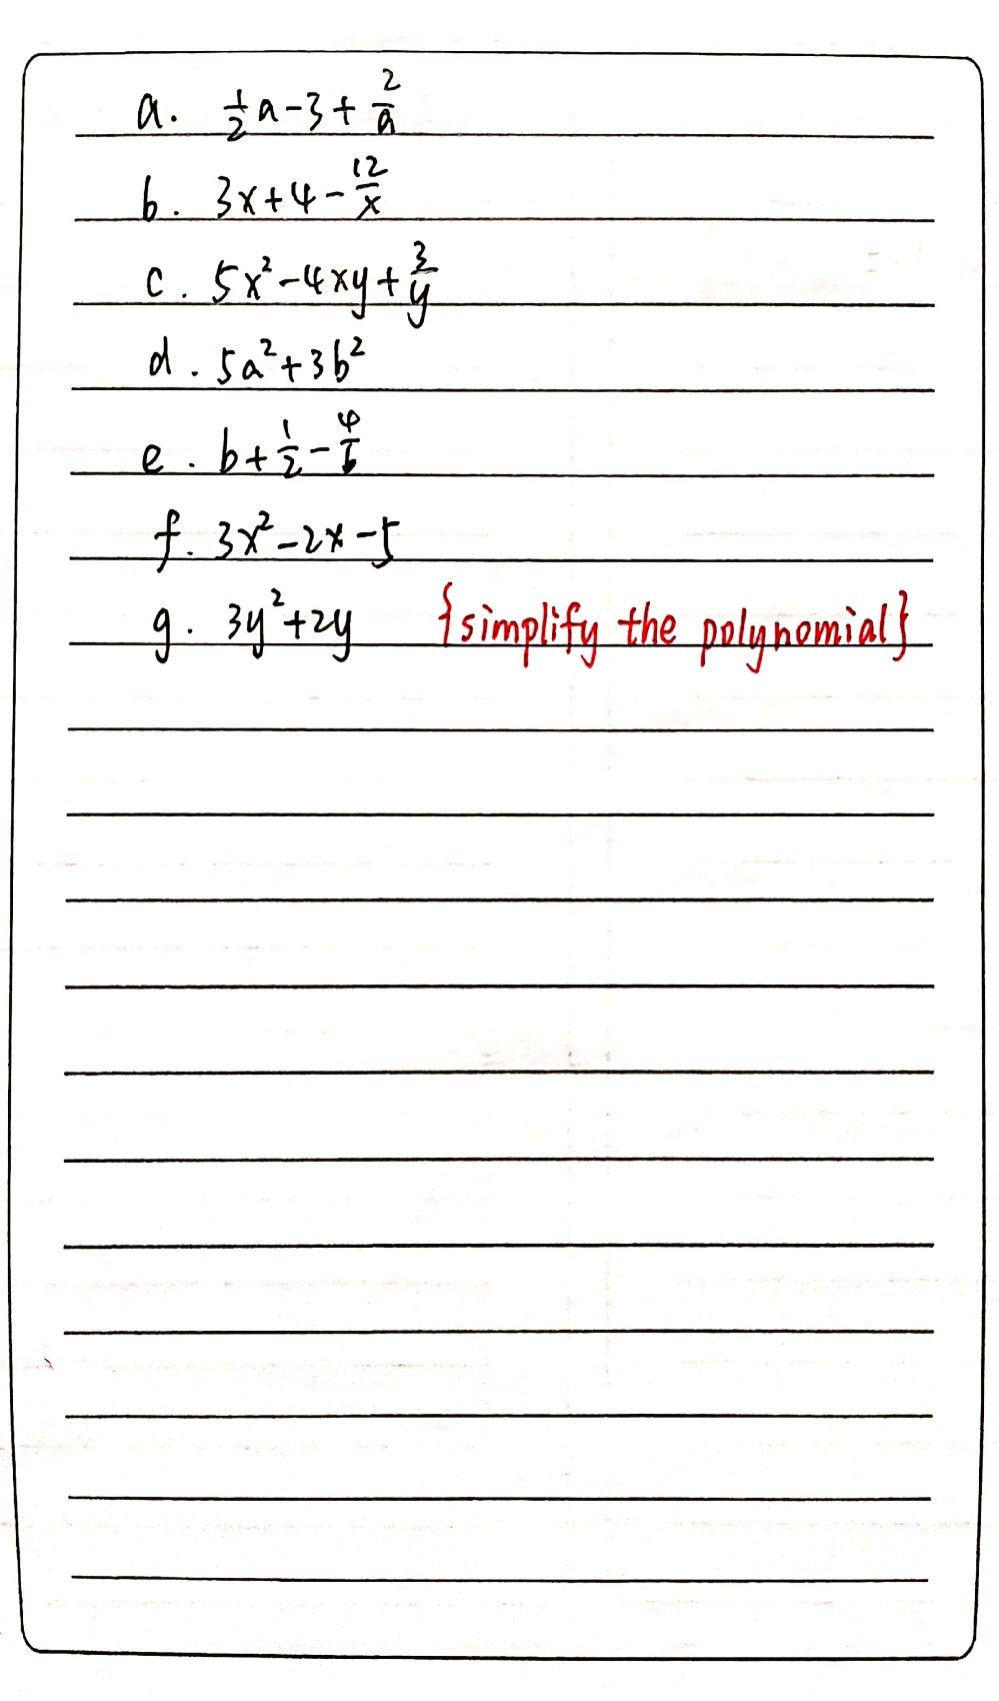 a. \frac{1}{2}a-3+\frac{2}{a}
b. 3x+4-\frac{12}{x}
c. 5x^2-4xy+\frac{3}{y}
d. 5a^2+3b^2
e. b+\frac{1}{2}-\frac{4}{b}
f. 3x^2-2x-5
g. 3y^2+2y {simplify the polynomial}